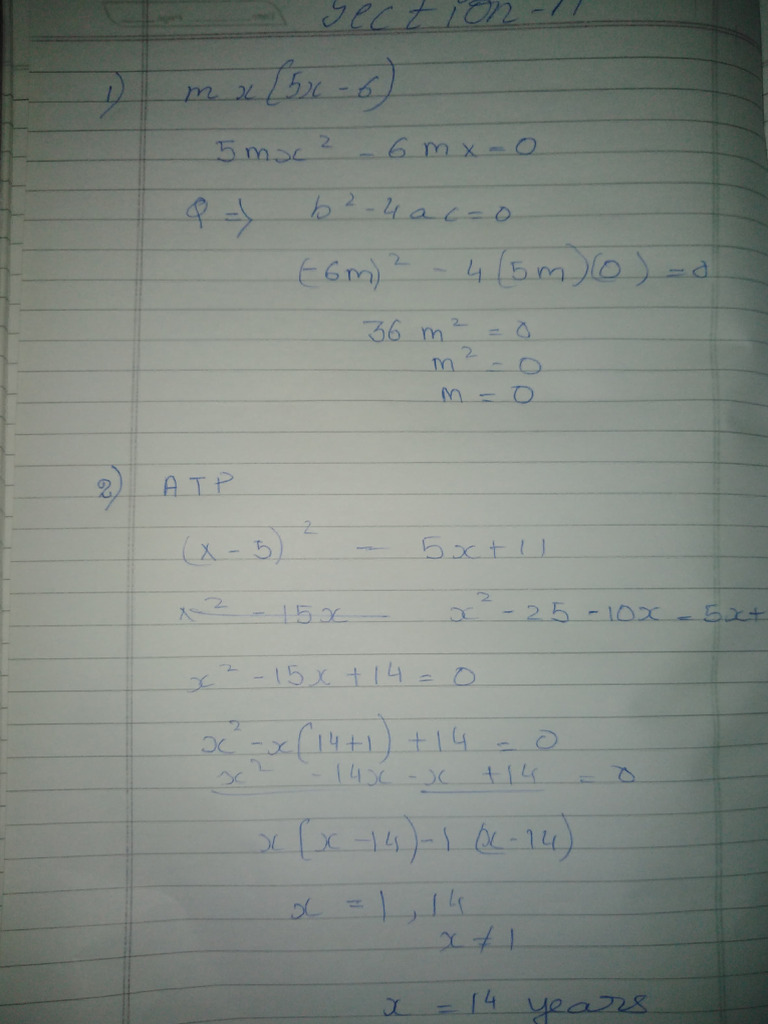 Section-II
1) m x (5x - 6)
5mx² - 6mx = 0
⇒ b² - 4ac = 0
(-6m)² - 4(5m)(0) = 0
36 m² = 0
m² = 0
m = 0
2) ATP
(x - 5)² = 5x + 11
x² - 15x - x² - 25 - 10x = 5x+
x² - 15x + 14 = 0
x² - x(14+1) + 14 = 0
x² - 14x - x + 14 = 0
x(x - 14) - 1 (x - 14)
x = 1, 14
x ≠ 1
x = 14 years